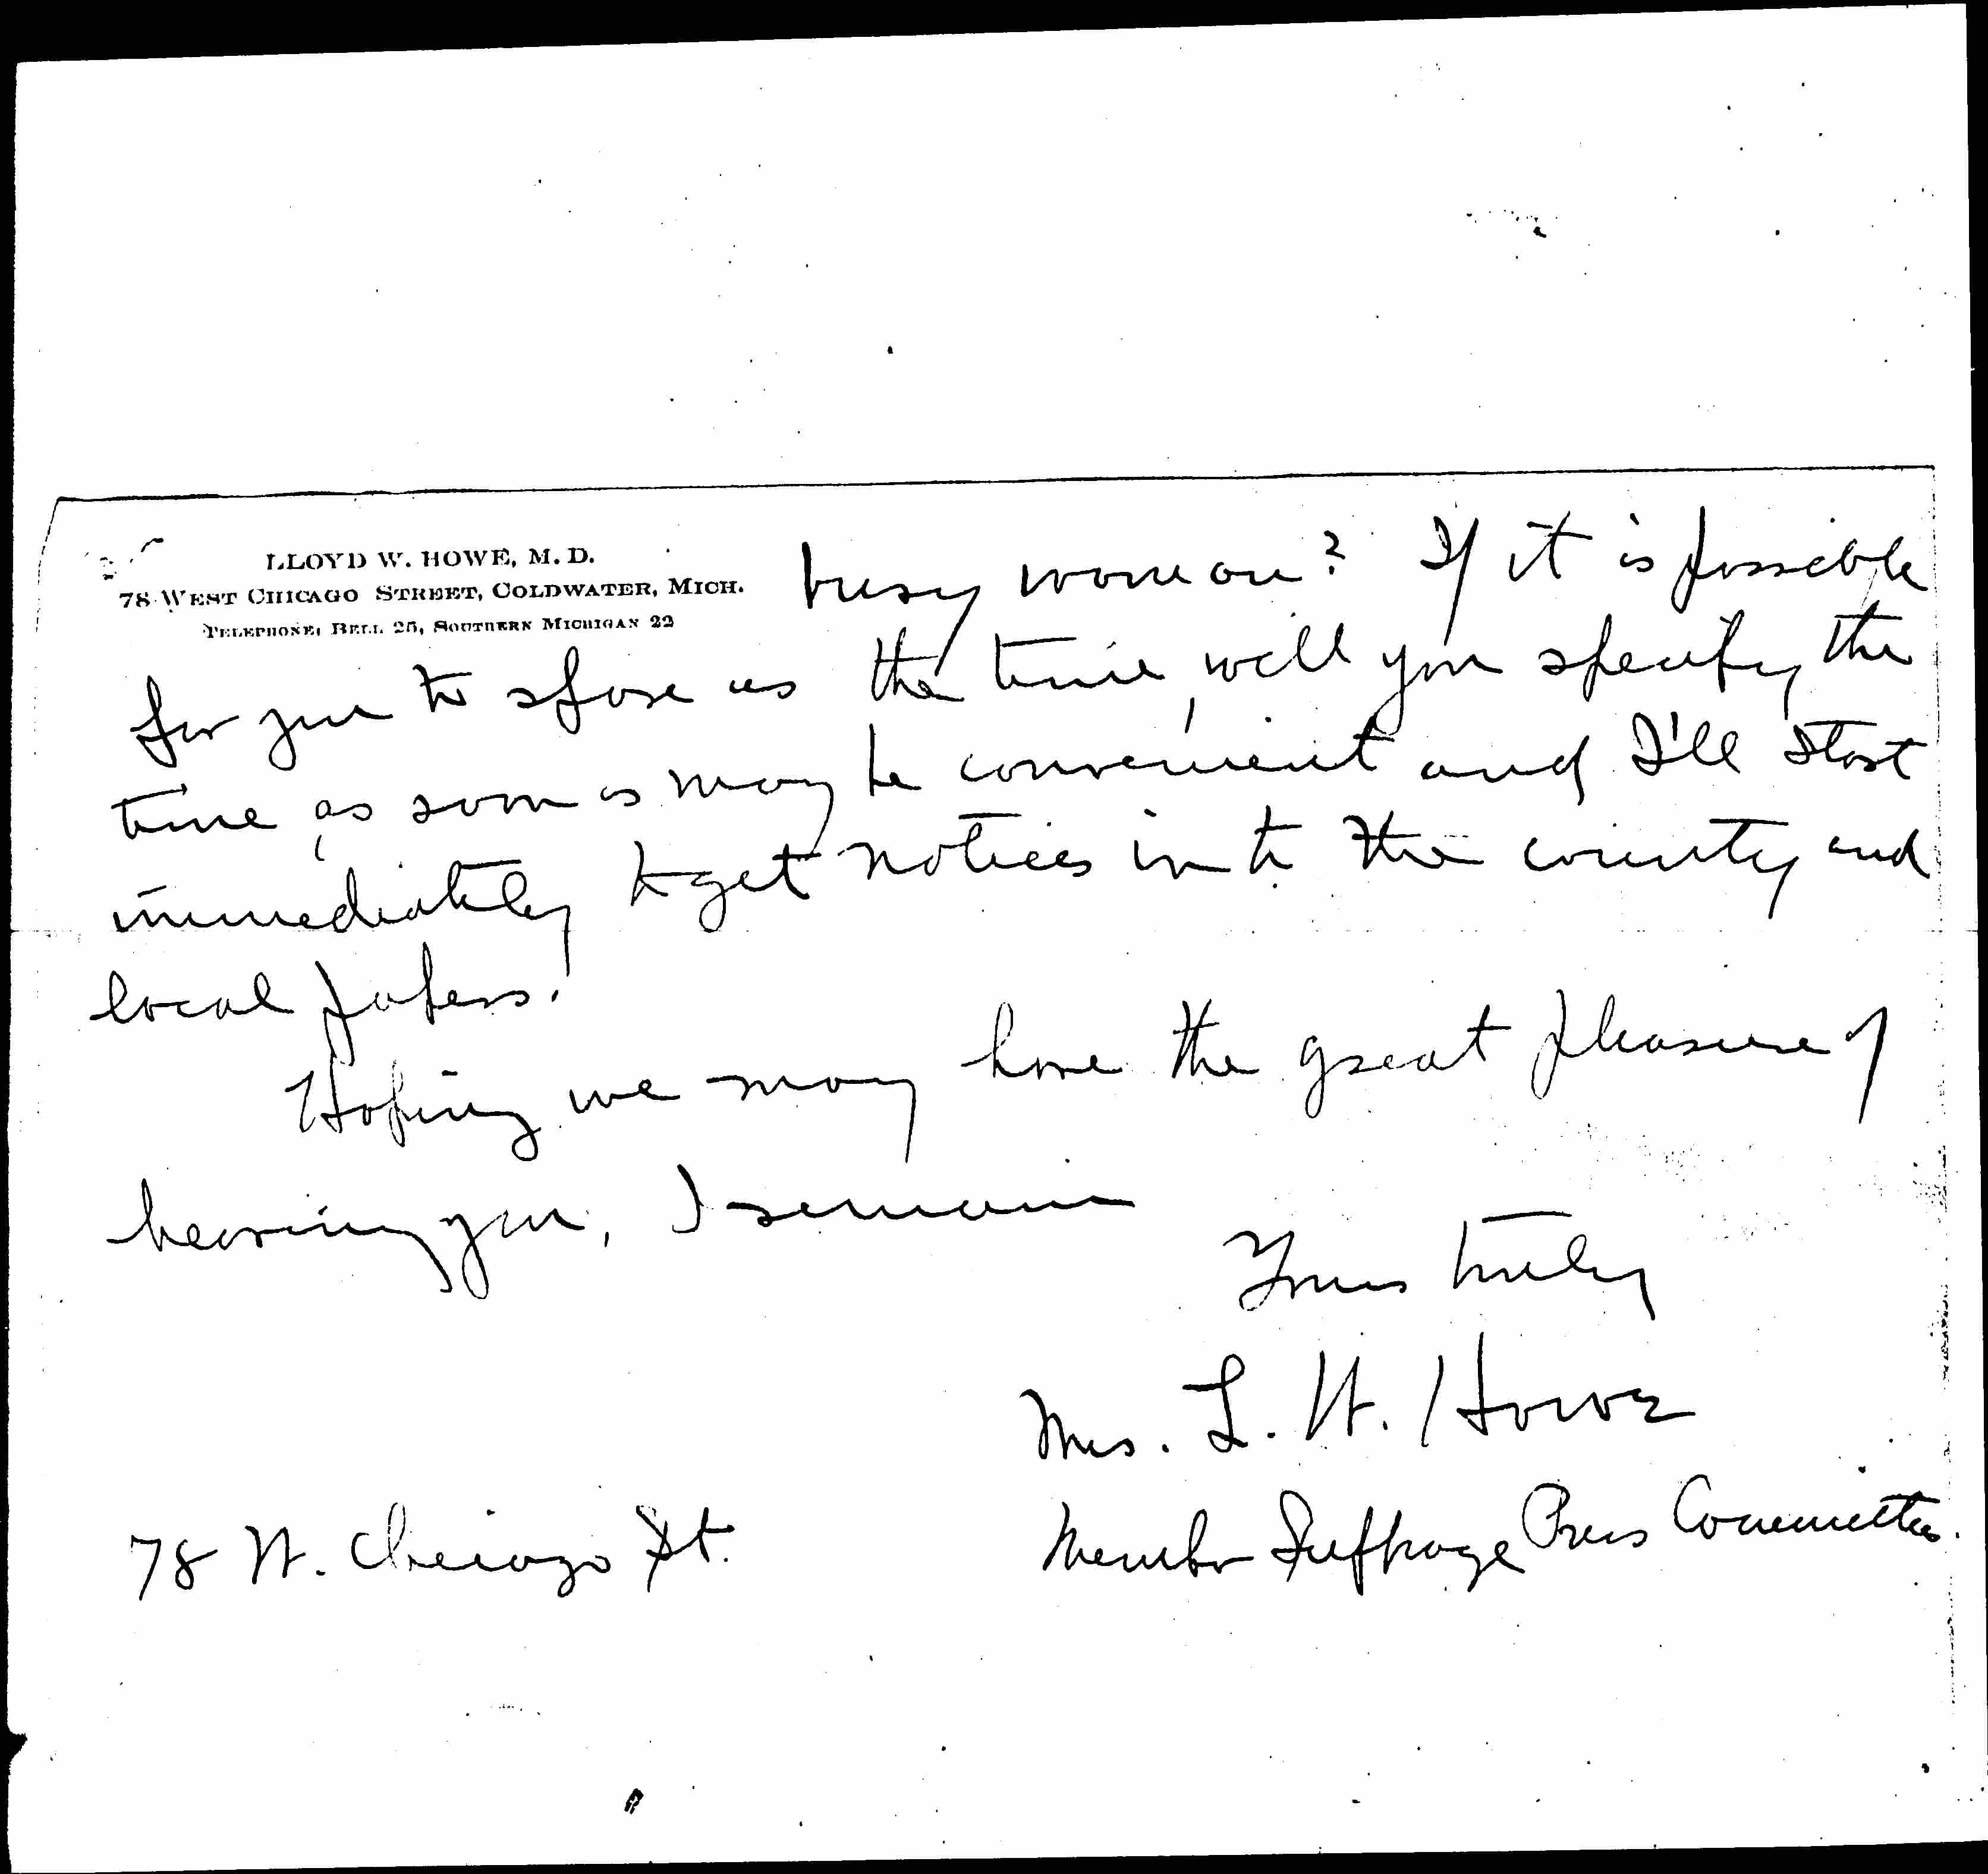 LLOYD W. HOWE, M. D.
78 WEST CHICAGO STREET, COLDWATER, MICH.
TELEPHONE: BELL 25, SOUTHERN MICHIGAN 22
busy woman? If it is possible
for you to spare us the time, will you specify the
time, as soon as may be convenient and I'll start
immediately to get notices into the county and
local papers.
Hoping we may have the great pleasure of
hearing you, I remain
Yours truly
Mrs. L. W. Howe
Member Suffrage Press Committee.
78 W. Chicago St.